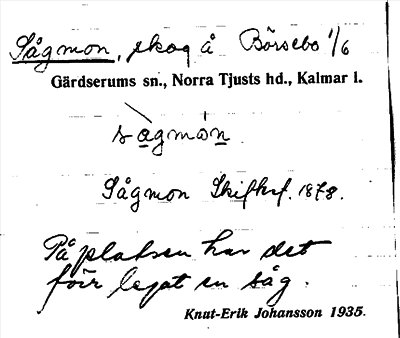 Sågmon, skog å Börsebo 1/6
Gärdserums sn., Norra Tjusts hd., Kalmar l.
sågmón
Sågmon Skifteskf. 1878.
På platsen har det
förr legat en såg.
Knut-Erik Johansson 1935.